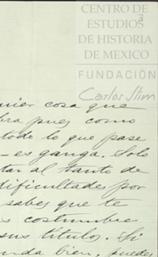 CENTRO DE
ESTUDIOS
DE HISTORIA
DE MEXICO
FUNDACIÓN
Carlos Slim
nier cosa que
bra pues como
tode lo que pase
- es ganga. Solo
tar al tanto de
dificultades por
sabes que te
s costumbre
sus titulos. Si
nda bien, puedes